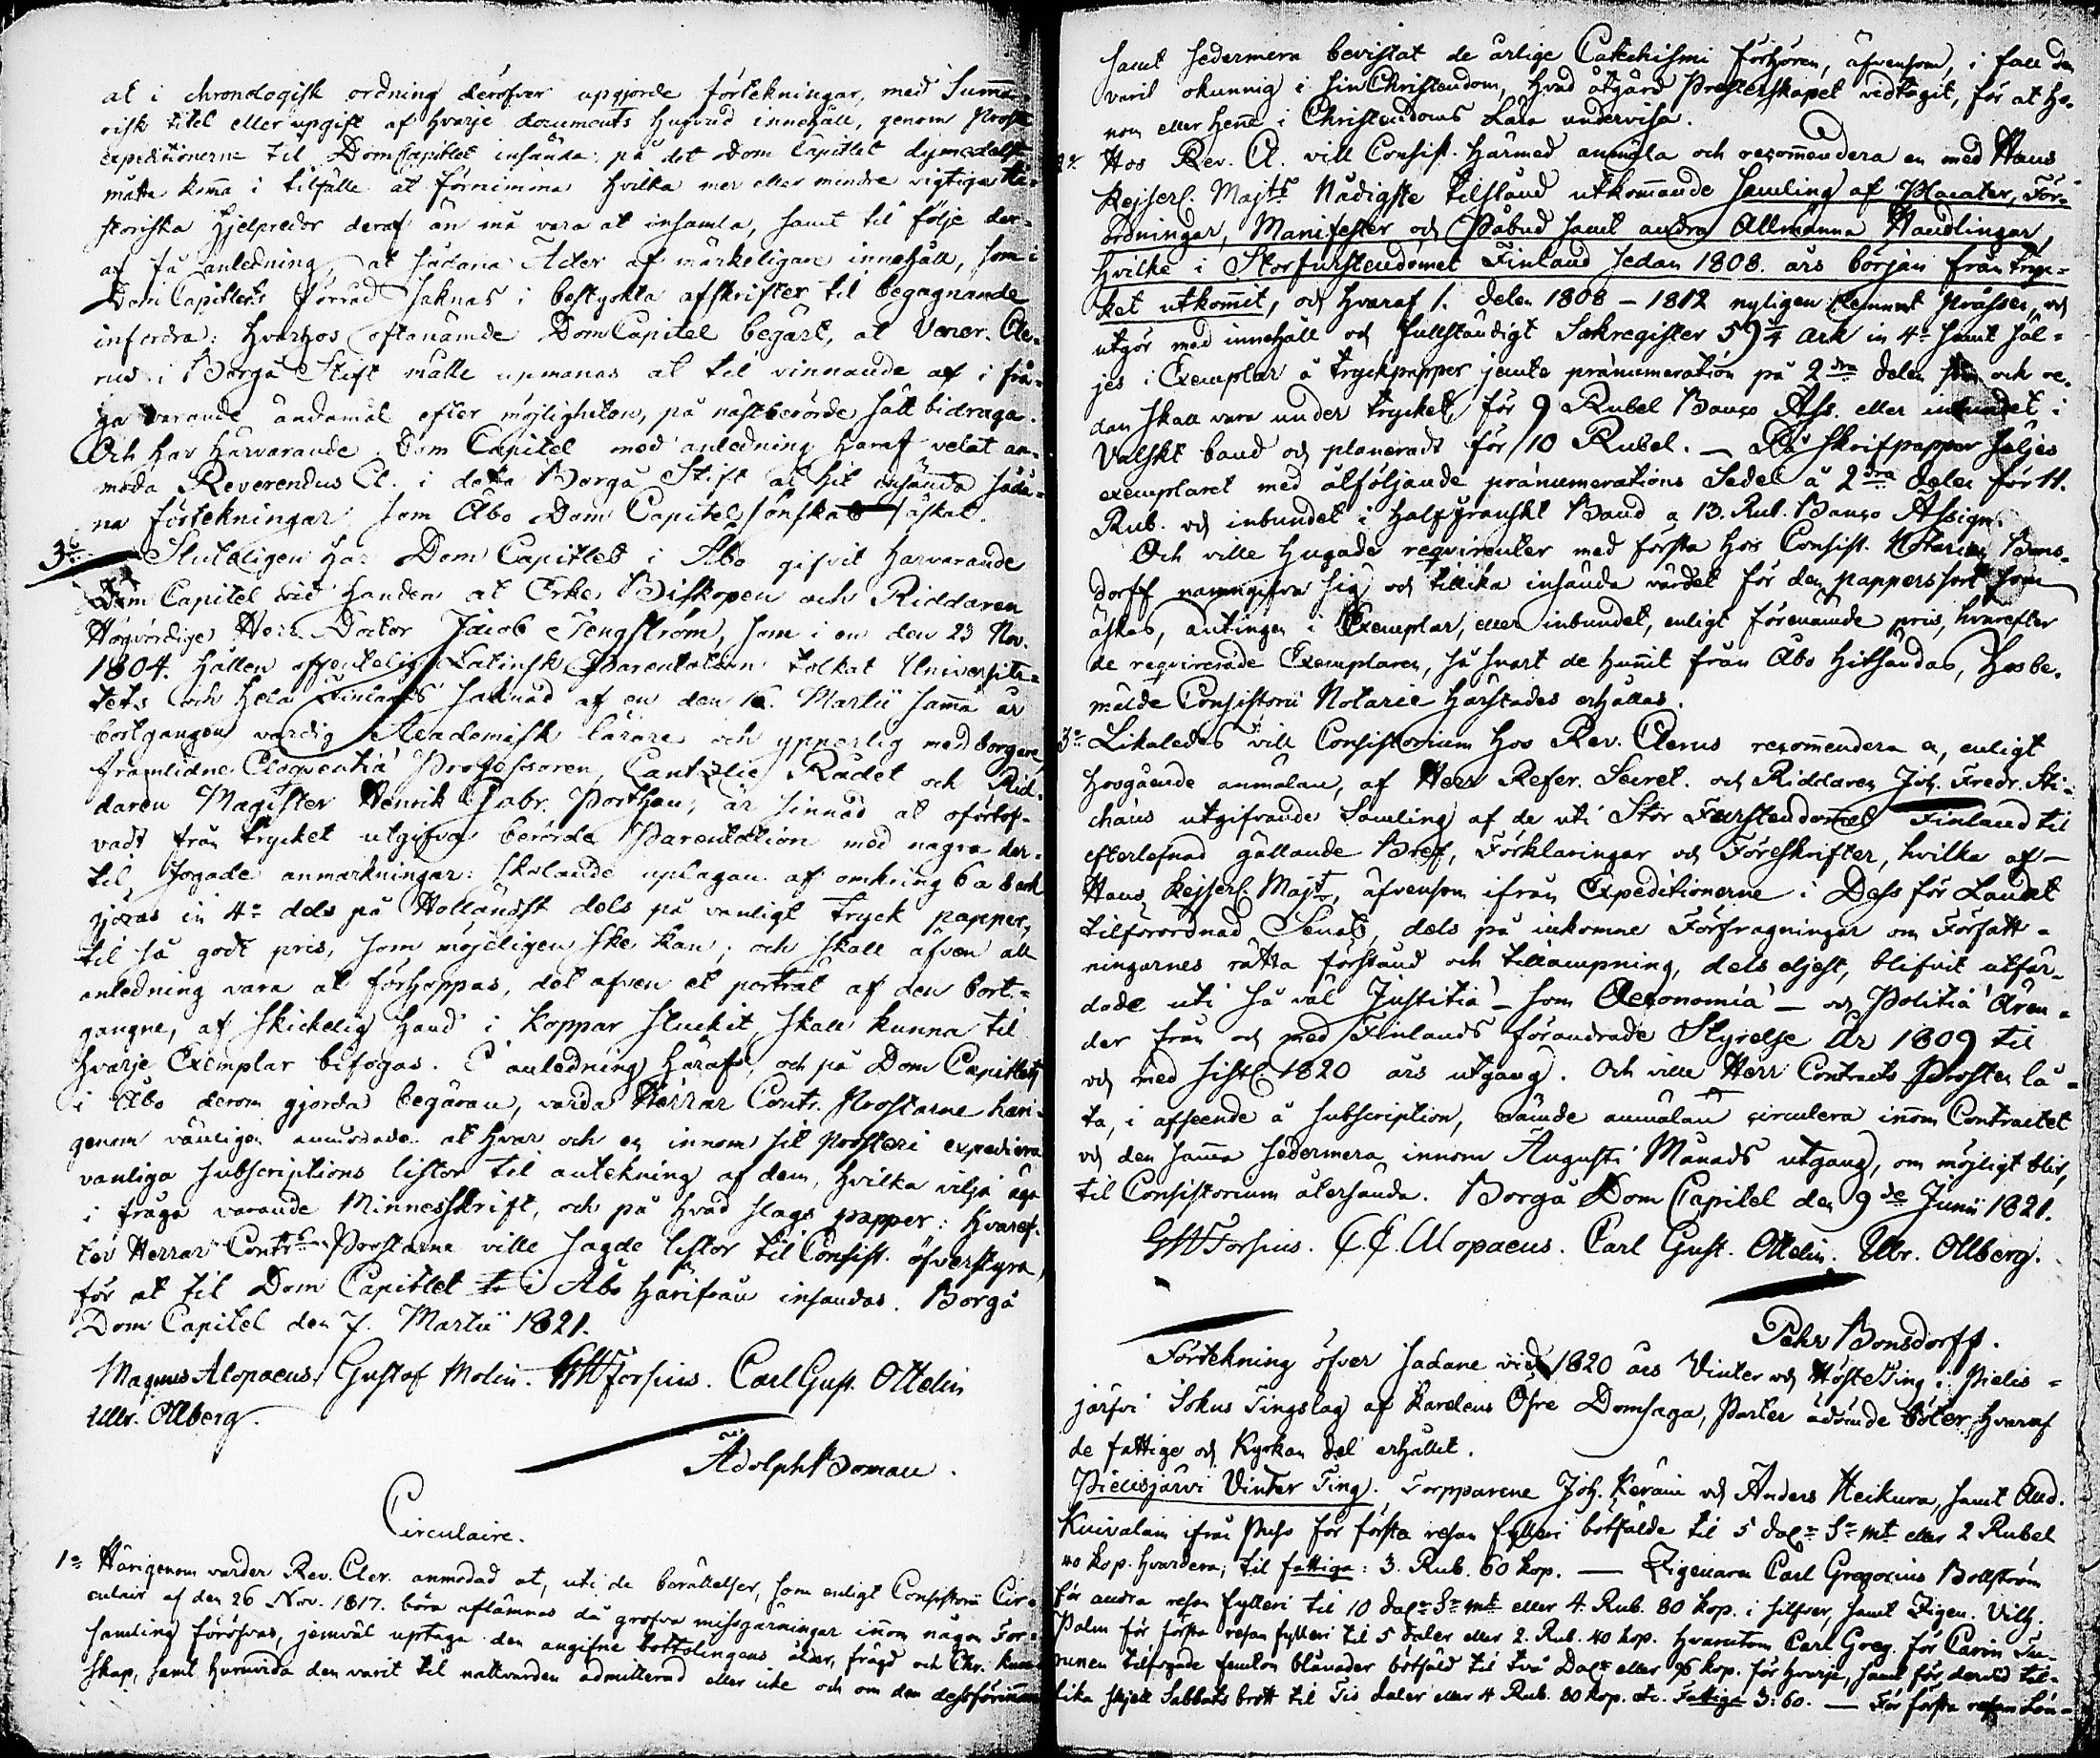 at i chronologisk ordning deröfver upgjorde förtekningar, med Summa-
risk titel eller upgift af hvarje documents hufvud innehåll, genom Prosts
expeditionerne til DomCapitlet insända: på det Dom Capitlet dymedelst
måtte koma i tilfälle at förnimma hvilka mer eller mindre vigtiga hi-
storiska Hjelpredor deraf än må vara at insamla, samt til följe der-
af få anledning, at sådana Acter af märkeligare innehåll, som i
Dom Capitlets förråd saknas i bestyrkta afskrifter til begagnande
infordra: hvarhos oftanämde DomCapitel begärt, at Vener. Cle-
rus i Borgå Stift måtte upmanas at til vinnande af i frå-
ga varande ändamål efter möjligheten, på nästberörde sätt bidraga.
Och har härvarande Dom Capitel med anledning häraf velat an-
moda Reverendus Cl. i detta Borgå Stift at hit insända såda-
na förtekningar som Åbo Dom Capitel önskat äskat.
3:o Sluteligen har Dom Capitlet i Åbo gifvit härvarande
Dom Capitel vid handen at Erke Biskopen och Riddaren
Högvördige Herr Doctor Jacob Tengström, som i en den 23 Nov.
1804. hållen offentelig Latinsk Parentation tolkat Universite-
tets och hela Finlands saknad af en den 16. Martii samma år
bortgången värdig Academisk lärare och ypperlig medborgare
framlidne Eloquentiæ Professoren, Cantzlie Rådet och Rid-
daren Magister Henrik Gabr. Porthan, är sinnad at oförtöf-
vadt från trycket utgifva berörde Parentation med några der-
til fogade anmärkningar: skolande uplagan af omkring 6 a 8 ark
göras in 4:o dels på Holländskt dels på vanligt tryck papper,
til så godt pris, som möjeligen ske kan; och skall äfven all
anledning vara at förhoppas, det äfven et porträt af den bort-
gångne, af skickelig hand i koppar stuckit, skall kunna til
hvarje Exemplar bifogas. I anledning häraf, och på Dom Capitlets
i Åbo derom gjorda begäran, varda Herrar Contr. Prostarne häri-
genom vänligen anmodade at hvar och en innom sit Prosteri expediera
vanliga subscriptions listor til antekning af dem, hvilka vilja äga
i fråga varande Minnesskrift, och på hvad slags papper: hvaref-
ter Herrar Contr:s Prostarne ville sagde listor til Consist. öfverstyra,
för at til Dom Capitlet i Åbo härifrån insändas. Borgå
Dom Capitel den 7. Martii 1821.
Magnus Alopaeus. Gustaf Molin. GWForsius. Carl Gust. Ottelin
Ulbr. Ollberg.
Adolph Boman.
Circulaire.
1:o Härigenom varder Rev. Cler. anmodad at, uti de berättelser, som enligt Consistorii Cir-
culair af den 26 Nov. 1817. böra aflämnas då grofva missgärningar inom någon För-
samling föröfvas, jemväl uptaga den angifne brottslingens ålder, frägd och Chr. kun-
skap, samt huruvida den varit til nattvarden admitterad eller icke och om den dessförinnan
samt sedermera bevistat de årlige Catechismi förhören, äfvensom, i fall den
varit okunnig i sin Christendom, hvad åtgärd Presterskapet vedtagit, för at ho-
nom eller henne i Christendoms Lära undervisa.
2:o Hos Rev. Cl. vill Consist. härmed anmäla och recommendera en med Hans
Kejserl. Majt:s Nådigste tilstånd utkommande samling af Placater, För-
ordningar, Manifester och Påbud samt andra Allmänna Handlingar,
hvilke i Storfurstendömet Finland sedan 1808. års början från tryc-
ket utkommit, och hvaraf 1. delen 1808 – 1812 nyligen lemnat Prässen, och
utgör med innehåll och fullständigt Sakregister 59 1/4 ark in 4:o samt säl-
jes i Exemplar å tryckpapper jemte pränumeration på 2:dra delen som och re-
dan skall vara under trycket, för 9 Rubel Banco Ass. eller inbundet i
Valskt band och planeradt för 10 Rubel. — På skrifpapper säljes
exemplaret med åtföljande pränumerations Sedel å 2:dra delen för 11.
Rub. och inbundet i halffranskt Band a 13. Rub. Banco Assign.
Och ville hugade reqvirenter med första hos Consist. Notarien Bons-
dorff namngifva sig och tillika insända värdet för den papperssort som
äskas, antingen i Exemplar, eller inbundet, enligt förenämde pris, hvarefter
de reqvirerade Exemplaren, så snart de hunnit från Åbo hitsändas, hos be-
mälde Consistorii Notarie härstädes erhållas.
3:o Likaledes vill Consistorium hos Rev. Clerus recommendera en, enligt
hosgående anmälan, af Herr Refer. Secret. och Riddaren Joh. Fredr. Sti-
chæus utgifvande Samling af de uti Stor Furstendömet Finland til
efterlefnad gällande Bref, Förklaringar och Föreskrifter, hvilka af
Hans Kejserl. Majt, äfvensom ifrån Expeditionerne i Dess för Landet
tilförordnad Senat, dels på inkomne Förfrågningar om Författ-
ningarnes rätta förstånd och tillämpning, dels eljest, blifvit utfär-
dade uti så väl Justitiæ – som Oeconomiæ – och Politiæ Ären-
der från och med Finlands förändrade Styrelse År 1809 til
och med sistl. 1820 års utgång. Och ville Herr Contracts Prosten lå-
ta, i afseende å subscription, nämde anmälan circulera inom Contractet
och den samma sedermera innom Augusti Månads utgång, om möjligt blir,
til Consistorium återsända. Borgå Dom Capitel den 9:de Junii 1821.
GWForsius. C. C. Alopaeus. Carl Gust. Ottelin. Ulbr. Ollberg.
Pehr Bonsdorff.
Förtekning öfver sadane vid 1820 års Vinter och Höste Ting i Pielis-
järfvi Sokns Tingslag af Karelens Öfre Domsaga, Parter ådömde böter, hvaraf
de fattige och Kyrkan del erhållit.
Pielisjärvi Vinter Ting. Torpparene Joh. Keräin och Anders Heikura, samt And.
Kuivalain ifrån Puso för första resan fylleri bötfälde til 5 dal:r S:r mt eller 2 Rubel
40 kop. hvardera; til fattiga: 3. Rub. 60 kop. — Zigenaren Carl Gregorius Bollström
för andra resan fylleri til 10 dal:r S:r mt eller 4. Rub. 80 kop. i silfver, samt Zigen. Vilh.
Palm för första resan fylleri til 5 daler eller 2. Rub. 40 kop. hvarutom Carl Greg. för Carin Tu-
runen tilfogade femton blånader bötfäld til två Dal:r eller 96 kop. för hvarje, samt för dervid til-
lika skjedt Sabbats brott til Tio daler eller 4 Rub. 80 kop. etc. Fattiga 3: 60. — För första resan Lön-